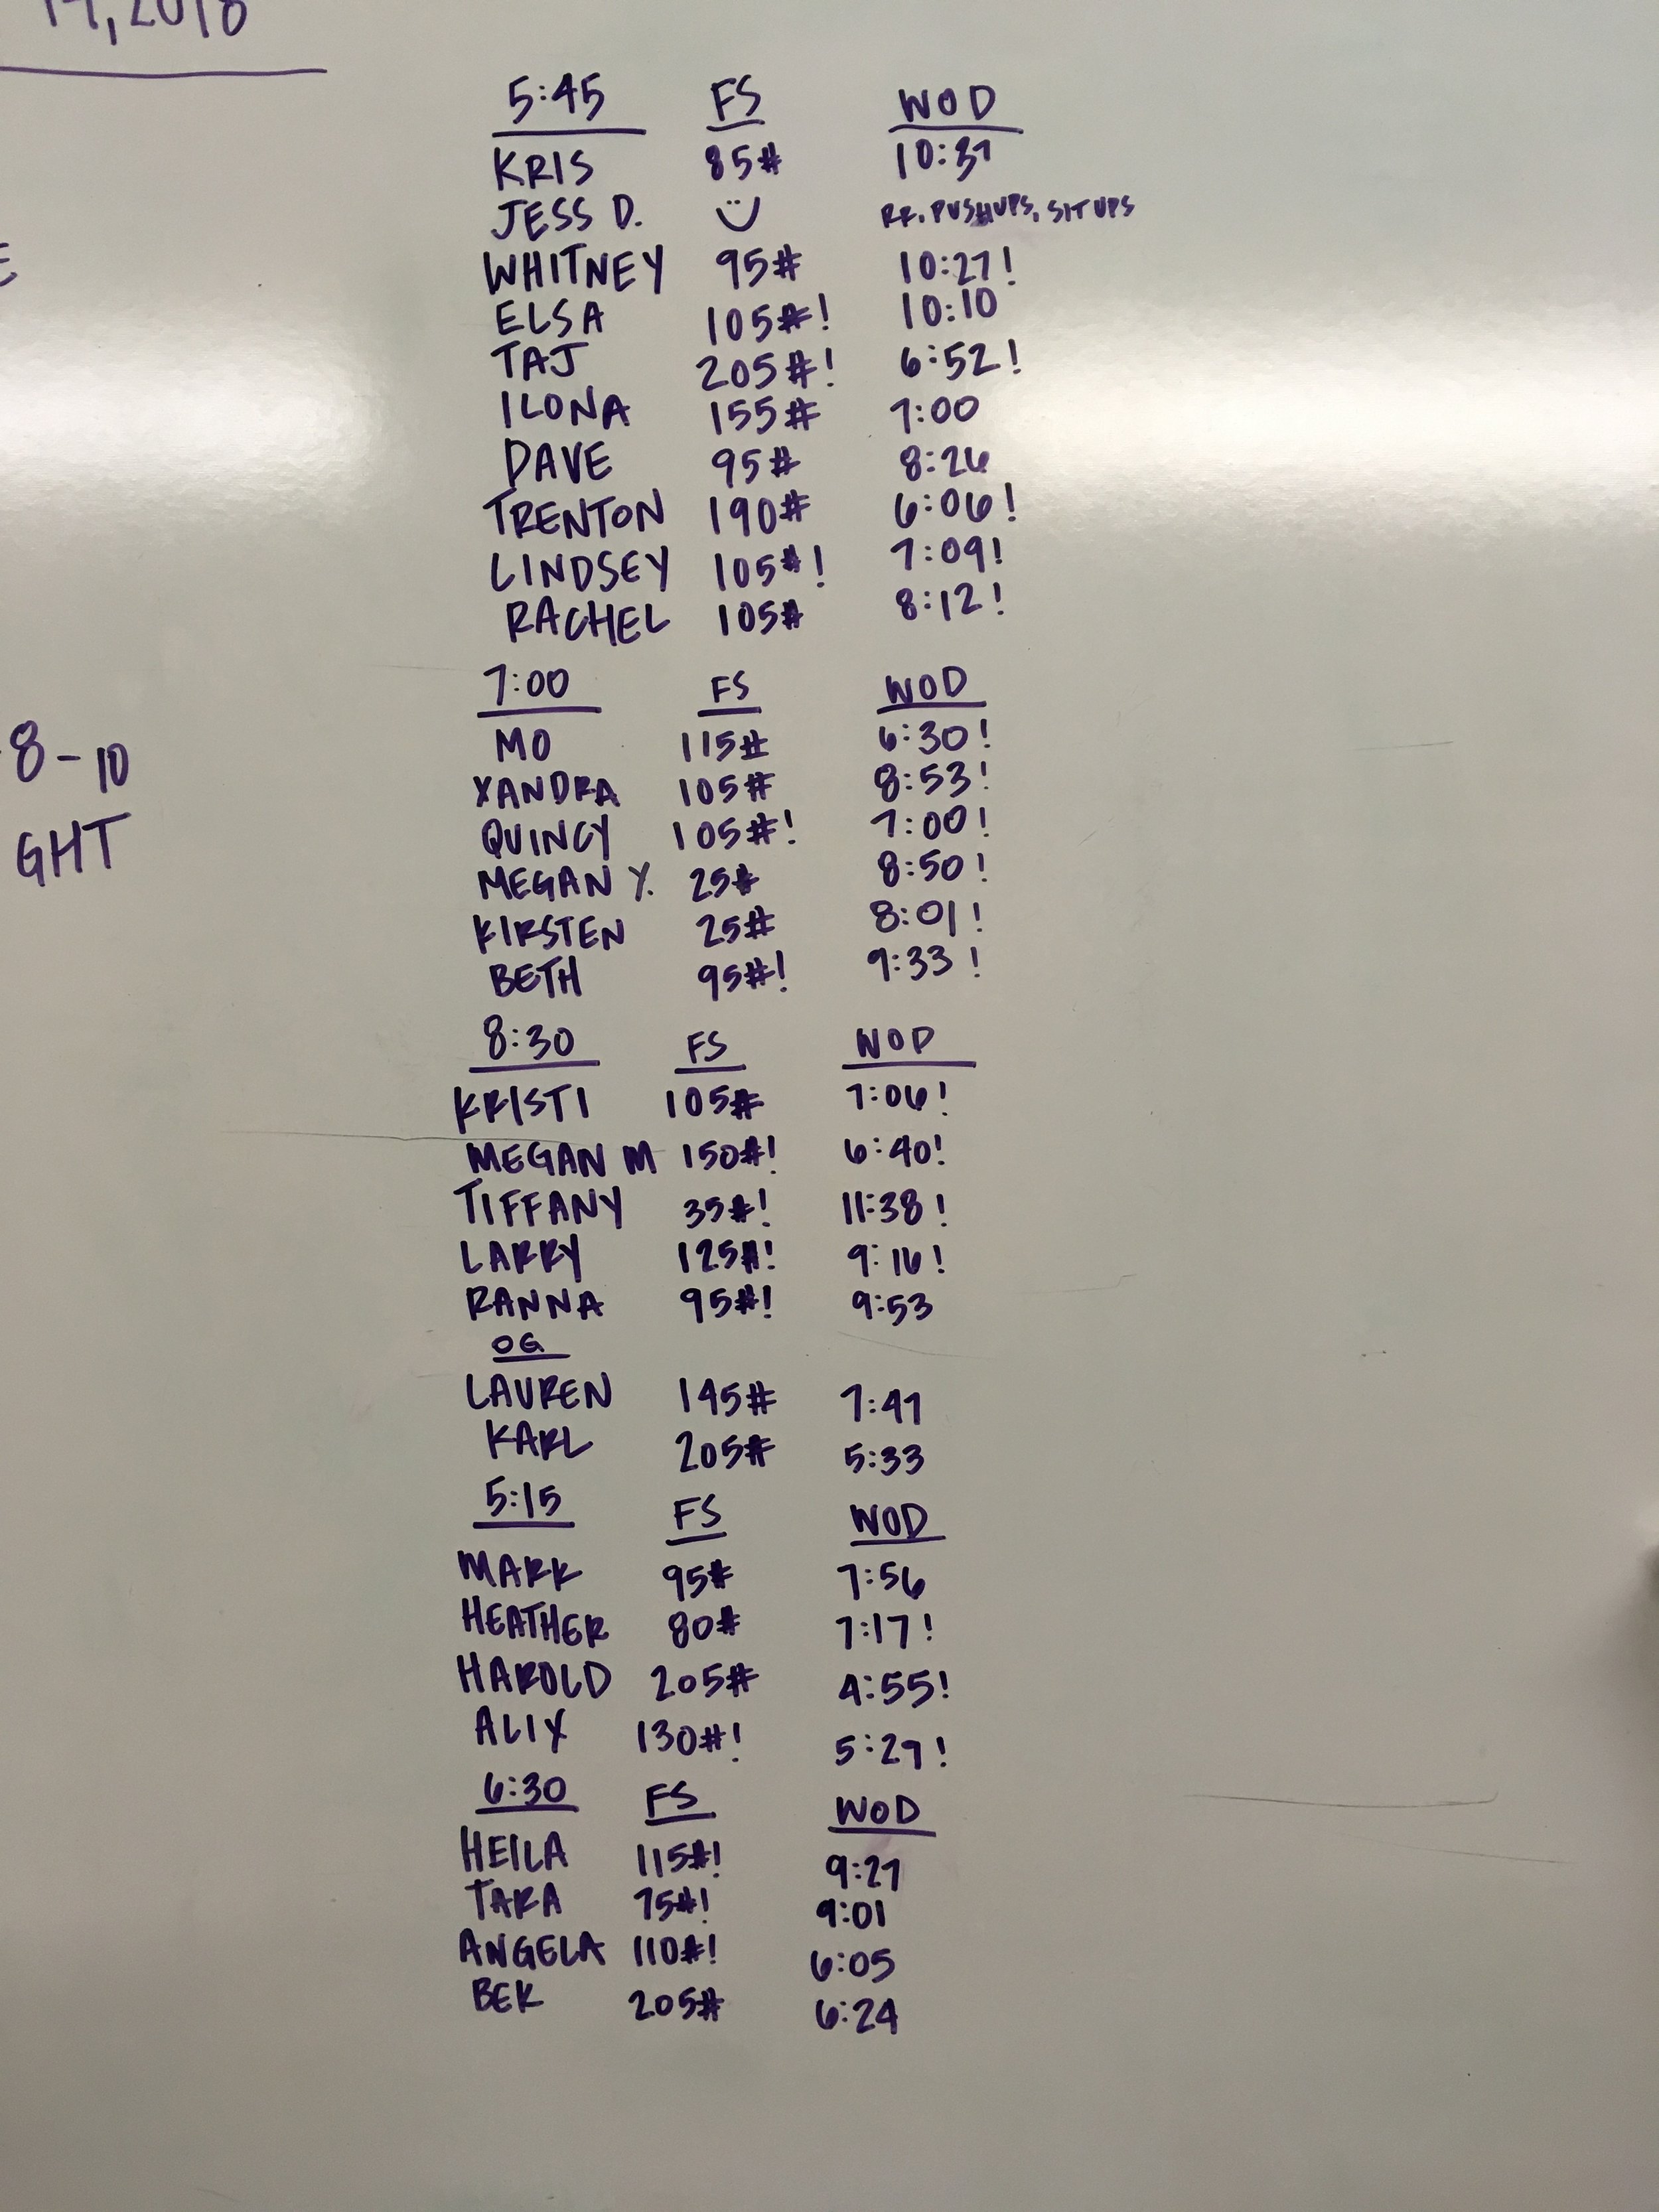 14, 2018
5:45 FS WOD
KRIS 85# 10:37
JESS D. RF, PUSHUPS, SITUPS
WHITNEY 95# 10:27!
ELSA 105#! 10:10
TAJ 205#! 6:52!
ILONA 155# 7:00
DAVE 95# 8:26
TRENTON 190# 6:06!
LINDSEY 105#! 7:09!
RACHEL 105# 8:12!
7:00 FS WOD
MO 115# 6:30!
8-10
XANDRA 105# 8:53!
QUINCY 105#! 7:00!
GHT
MEGAN Y. 25# 8:50!
KIRSTEN 25# 8:01!
BETH 95#! 9:33!
8:30 FS WOD
KRISTI 105# 7:06!
MEGAN M 150#! 6:40!
TIFFANY 35#! 11:38!
LARRY 125#! 9:16!
RANNA 95#! 9:53
OG
LAUREN 145# 7:47
KARL 205# 5:33
5:15 FS WOD
MARK 95# 7:56
HEATHER 80# 7:17!
HAROLD 205# 4:55!
ALIX 130#! 5:29!
6:30 FS WOD
HEILA 115#! 9:27
TARA 75#! 9:01
ANGELA 110#! 6:05
BEK 205# 6:24